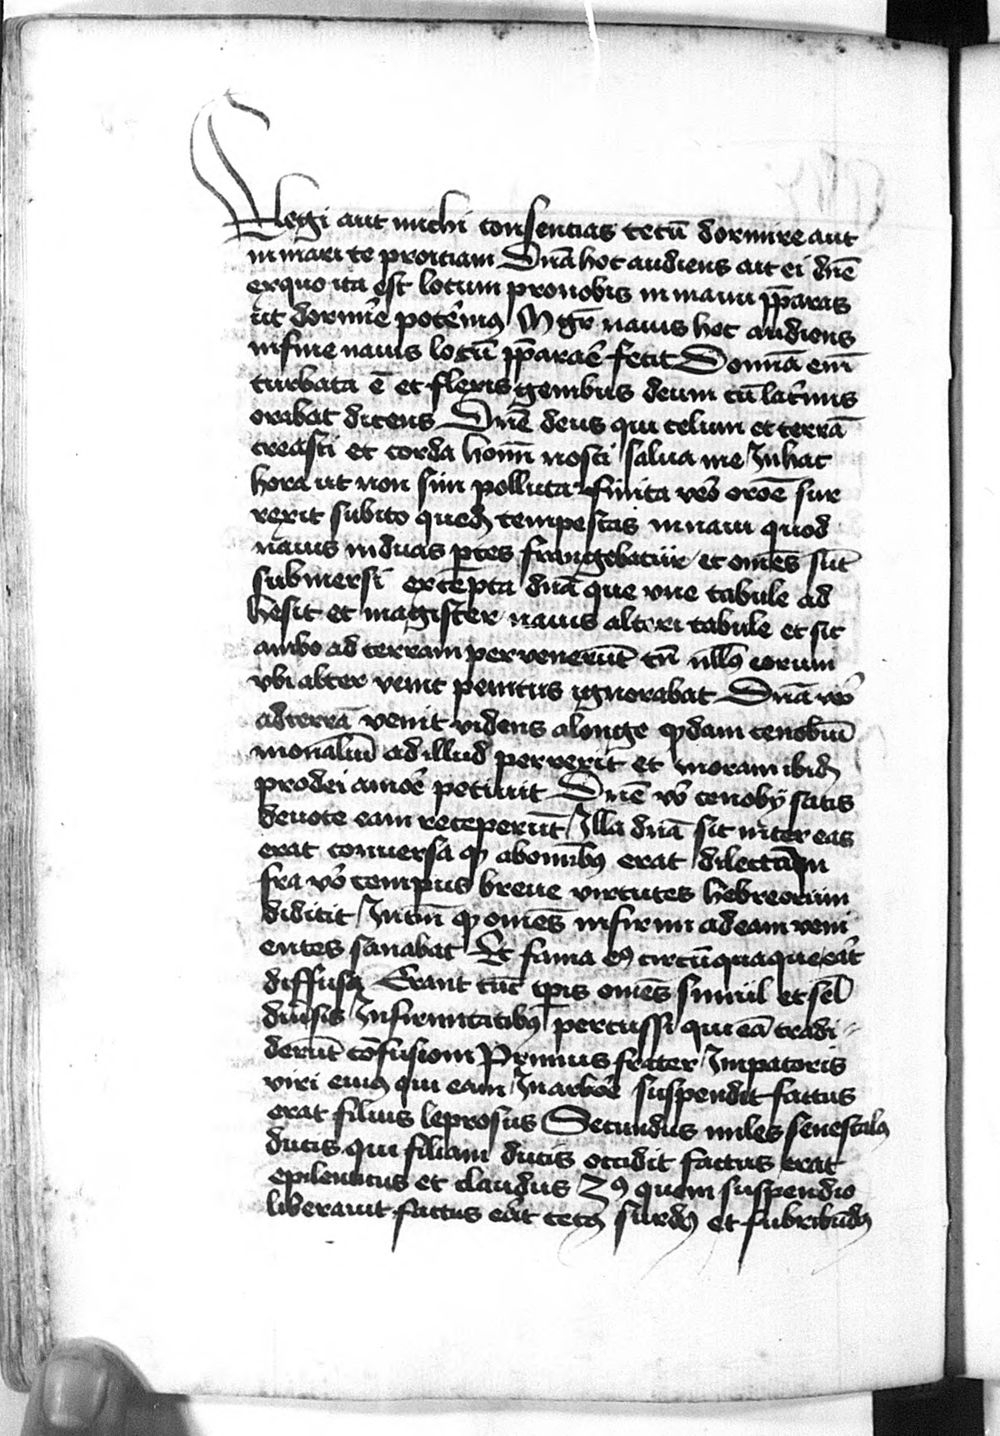 Elegi aut michi consencias tecū dormire aut
in mari te proiciam Dn̄a hoc audiens ait ei dn̄e
ex quo ita est locum pro nobis in naui p̄paras
ut dormir̄e poter̄imꝰ Mgr̄ nauis hoc audiens
in fine nauis locū p̄parar̄e fecit Domina em̄
turbata ē et flexis genibus deum cū lacr̄imis
orabat dicens Dn̄e deus qui celum et terrā
creasti et corda homī nosti salua me In hac
hora ut non sim polluta finita vō oroē sur
rexit subito quedā tempestas in naui quod
nauis in duas ptes frangebatur et om̄es sūt
submersi excepta dn̄a que vne tabule ad
hesit et magister nauis alteri tabule et sic
ambo ad terram peruenerūt tn̄ nullꝰ eorum
vbi alter venit penitus ignorabat Dn̄a vō
ad terrā venit videns a longe qdam cenobiū
monaliū ad illud perrexit et moram ibidē
pro dei amor̄e petiuit Dn̄e vō cenobij satis
deuote eam receperūt Illa dn̄a sic inter eas
erat conuersa qꝫ ab omībꝰ erat dilectam
Infra vō tempus breue virtutes hebreorum
didicit In tm̄ qꝫ om̄es infirmi ad eam veni
entes sanabat Et fama eꝰ circūquaque er̄at
diffusa Erant tūc tp̄is om̄es simul et sel̄
diūsis Infirmitatibꝰ percussi qui eā tradi
derūt cōfusioni Primus frater Imp̄atoris
viri eiuꝰ qui eam In arbor̄e suspendit factus
erat filius leprosus Secundus miles senescalꝰ
ducis qui filiam ducis occidit factus erat
epilenticus et claudus 3ꝰ quem suspendio
liberauit factus er̄at cecꝰ surdꝰ et fūbribūdꝰ